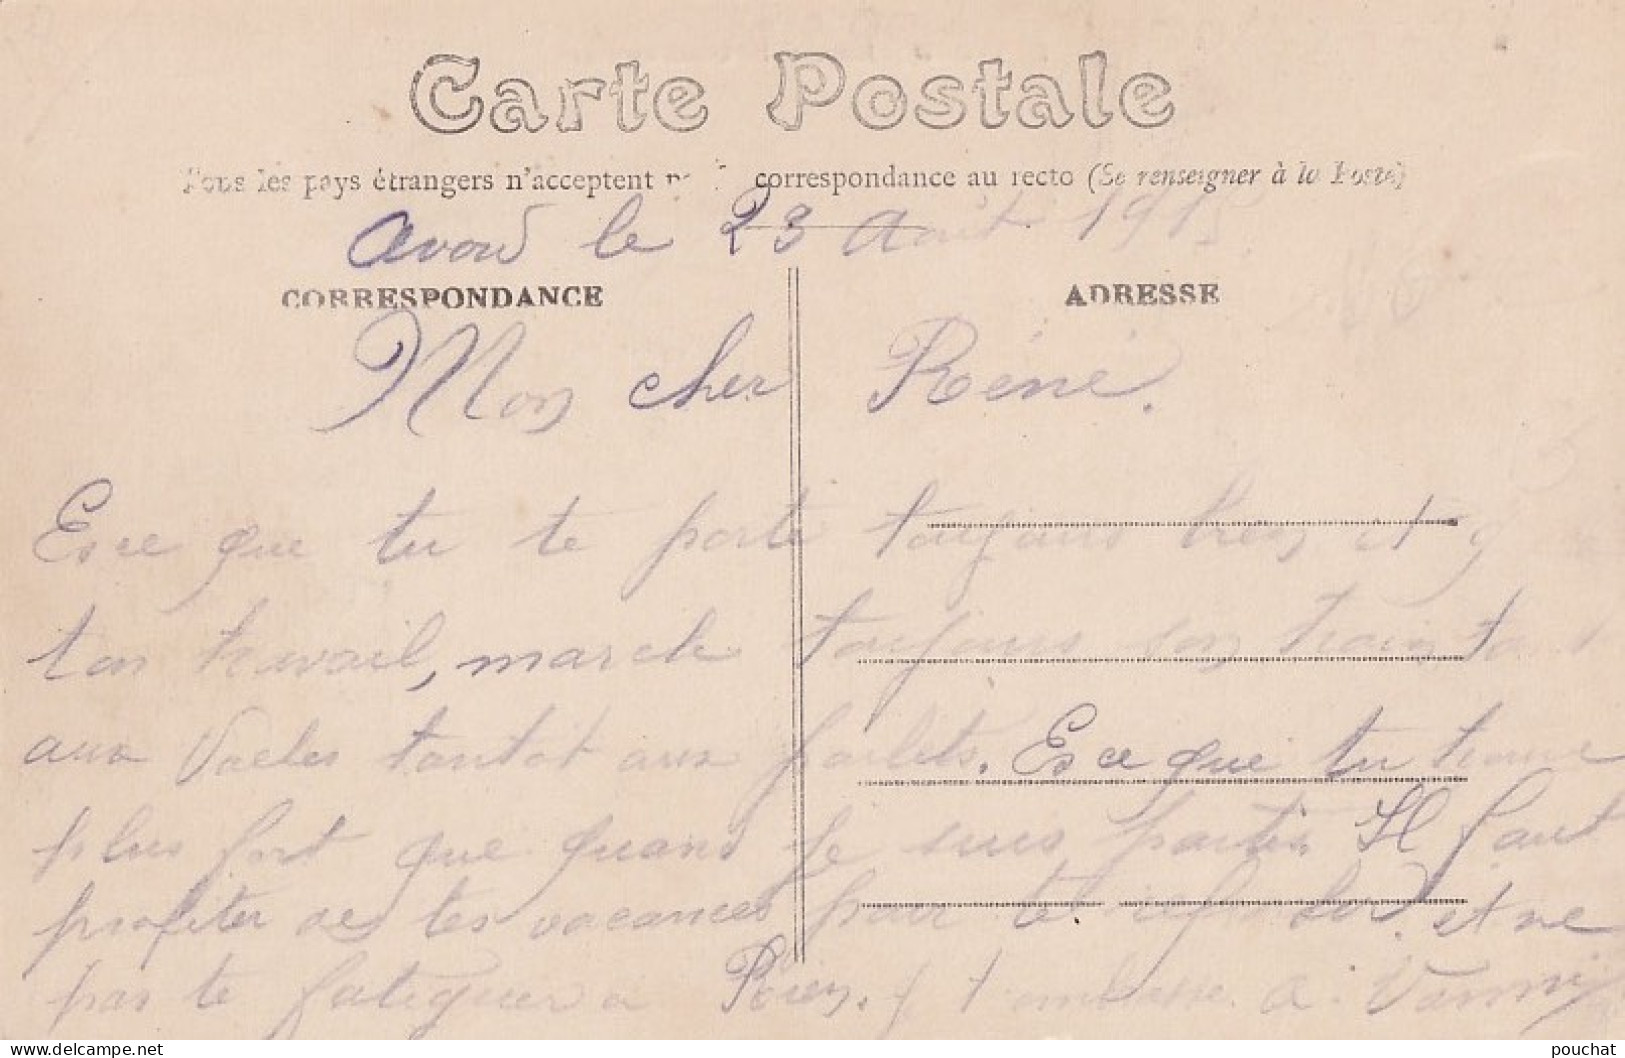 Carte Postale
Tous les pays étrangers n'acceptent correspondance au recto (Se renseigner à la Poste)
avord le 23 Août 191
CORRESPONDANCE
ADRESSE
Mon cher Réné.
Esce que tu te porte toujours bien et
ton travail, marche toujours son train
aux Vaches tantôt aux poulets. Es ce que tu trouve
plus fort que quand je suis partis Il faut
profiter de tes vacances pour te et ne
pas te fatiguer a Rien. t'embrasse. a.
pouchat